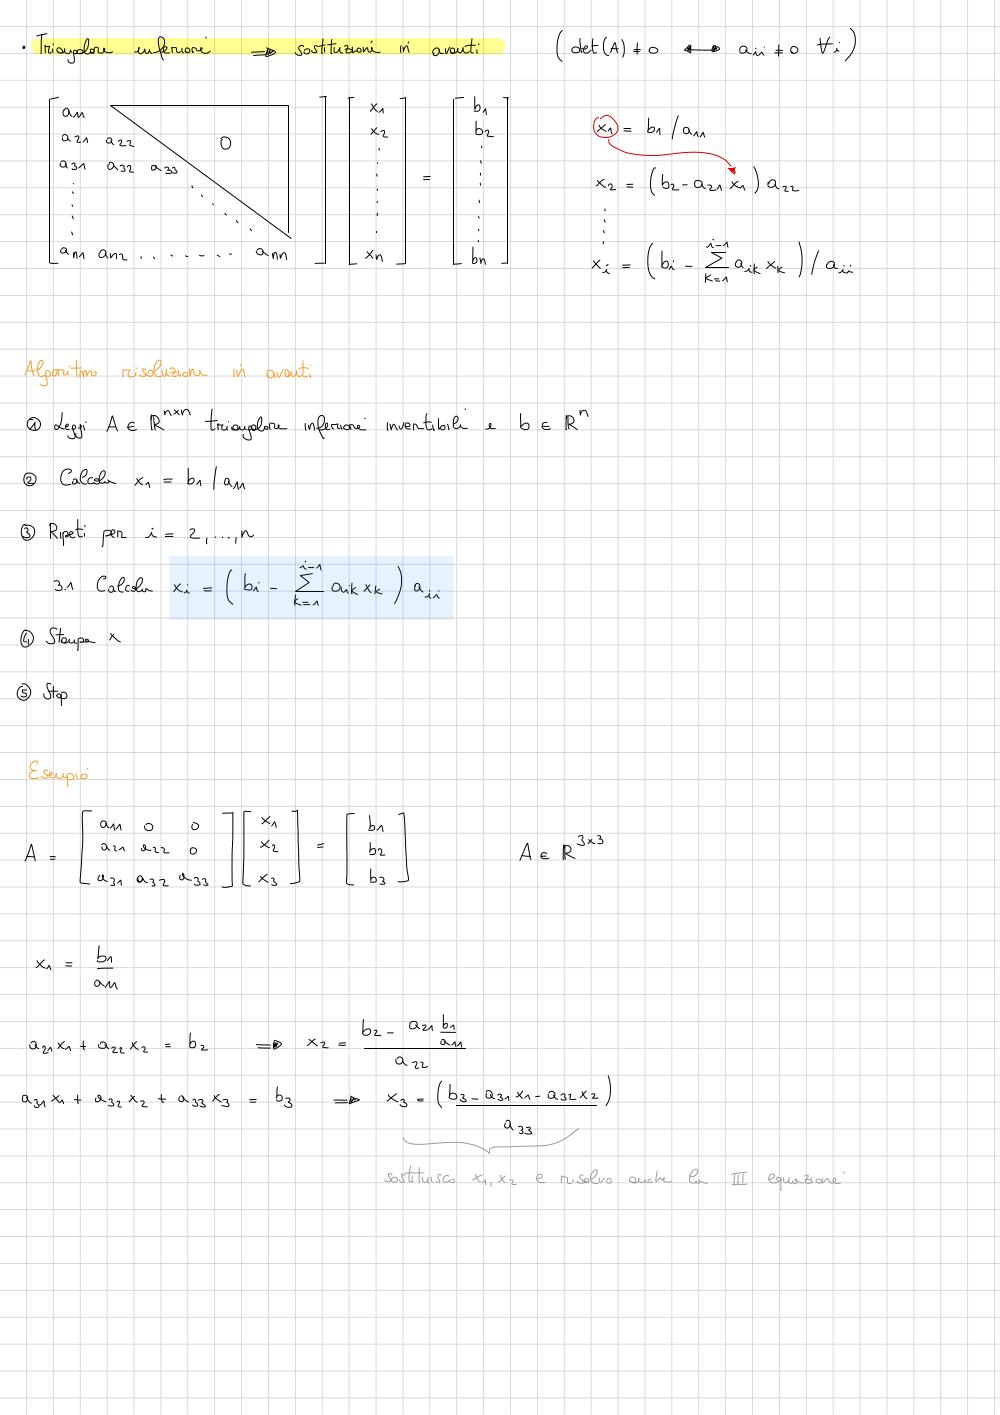 · Triangolare inferiore ⇒ sostituzioni in avanti ( det(A) ≠ 0 ↔ aii ≠ 0 ∀i )
[ a11 0 ] [ x1 ] [ b1 ]
a21 a22 x2 b2
a31 a32 a33 =
an1 an2 . . . . . . . ann xn bn
x1 = b1 / a11
x2 = ( b2 - a21 x1 ) a22
xi = ( bi - Σ_{k=1}^{i-1} aik xk ) / aii
Algoritmo risoluzione in avanti
① Leggi A ∈ ℝ^{n×n} triangolare inferiore invertibile e b ∈ ℝ^n
② Calcola x1 = b1 / a11
③ Ripeti per i = 2,...,n
3.1 Calcola xi = ( bi - Σ_{k=1}^{i-1} aik xk ) aii
④ Stampa x
⑤ Stop
Esempio
A = [ a11 0 0 ; a21 a22 0 ; a31 a32 a33 ] [ x1 ; x2 ; x3 ] = [ b1 ; b2 ; b3 ] A ∈ ℝ^{3×3}
x1 = b1 / a11
a21 x1 + a22 x2 = b2 ⇒ x2 = (b2 - a21 b1/a11) / a22
a31 x1 + a32 x2 + a33 x3 = b3 ⇒ x3 = ( b3 - a31 x1 - a32 x2 ) / a33
sostituisco x1, x2 e risolvo anche la III equazione